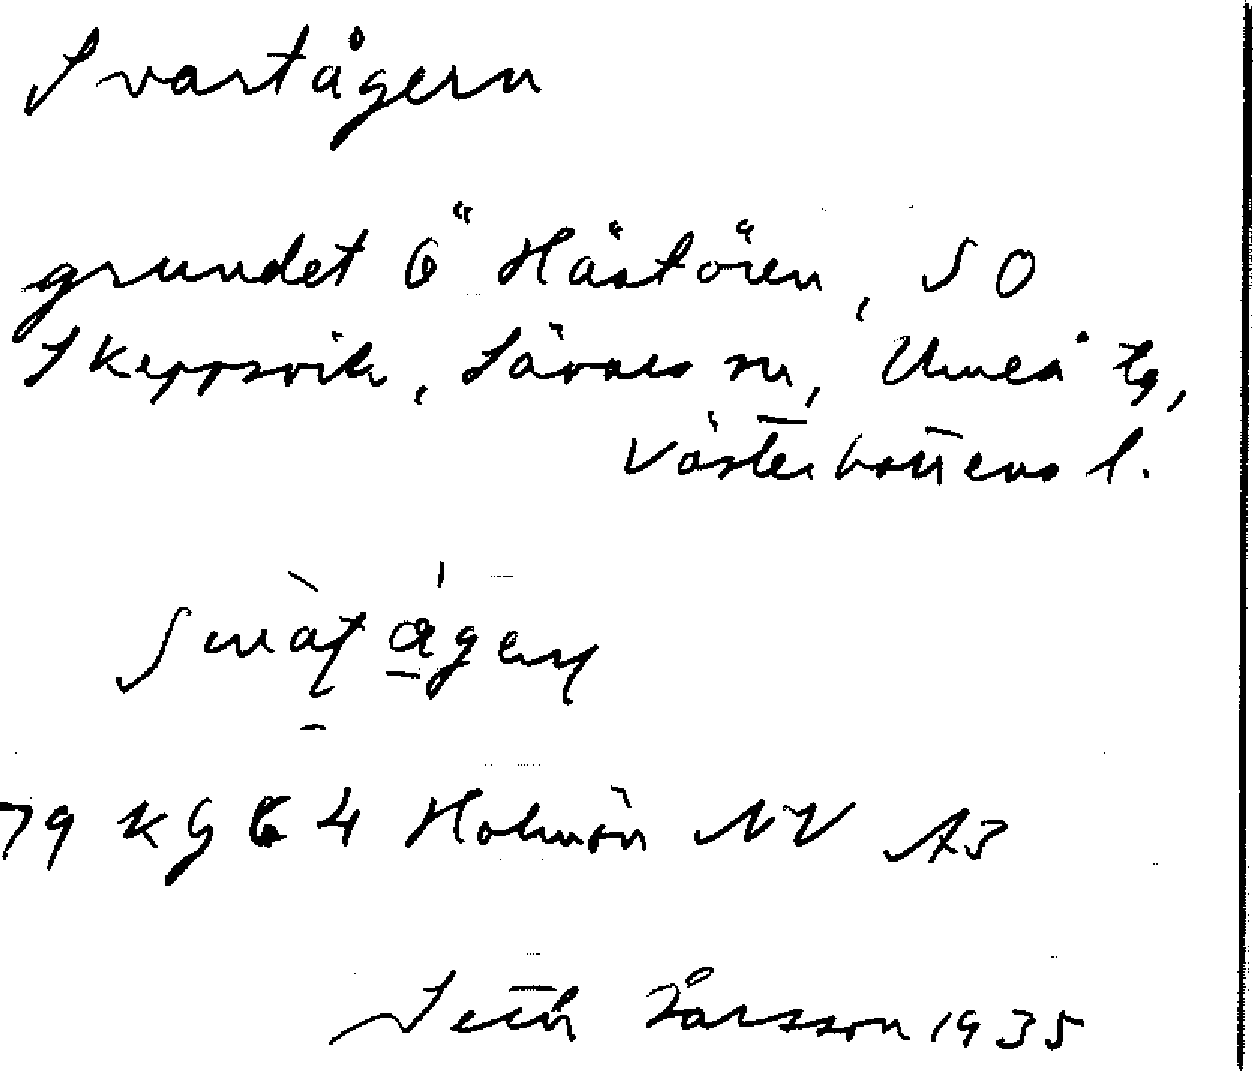 Svartågern
grundet Ö Hästören, SO
Skeppsvik, Sävars sn, Umeå tg,
Västerbottens l.
79 Kg 64 Holmön NV
Seth Larsson 1935